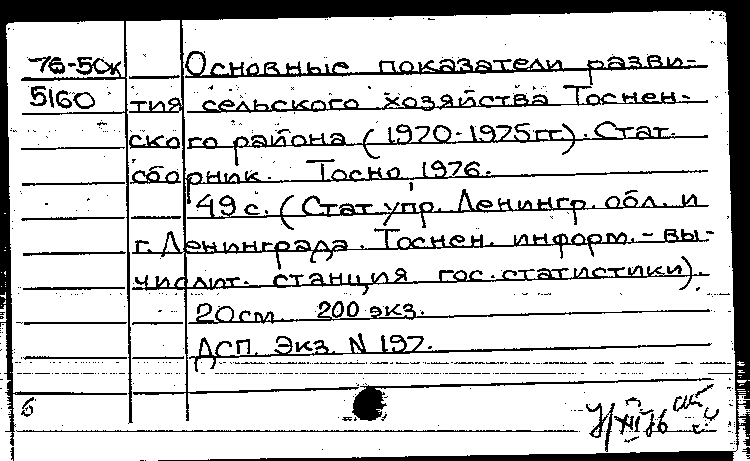 76-5ск Основные показатели разви-
5160 тия сельского хозяйства Тоснен-
ского района (1970-1975гг). Стат.
сборник. Тосно, 1976.
49 с. (Стат. упр. Ленингр. обл. и
г. Ленинграда. Тоснен. информ.-вы-
числит. станция гос. статистики).
20см. 200 экз.
ДСП. Экз. N 197.
6